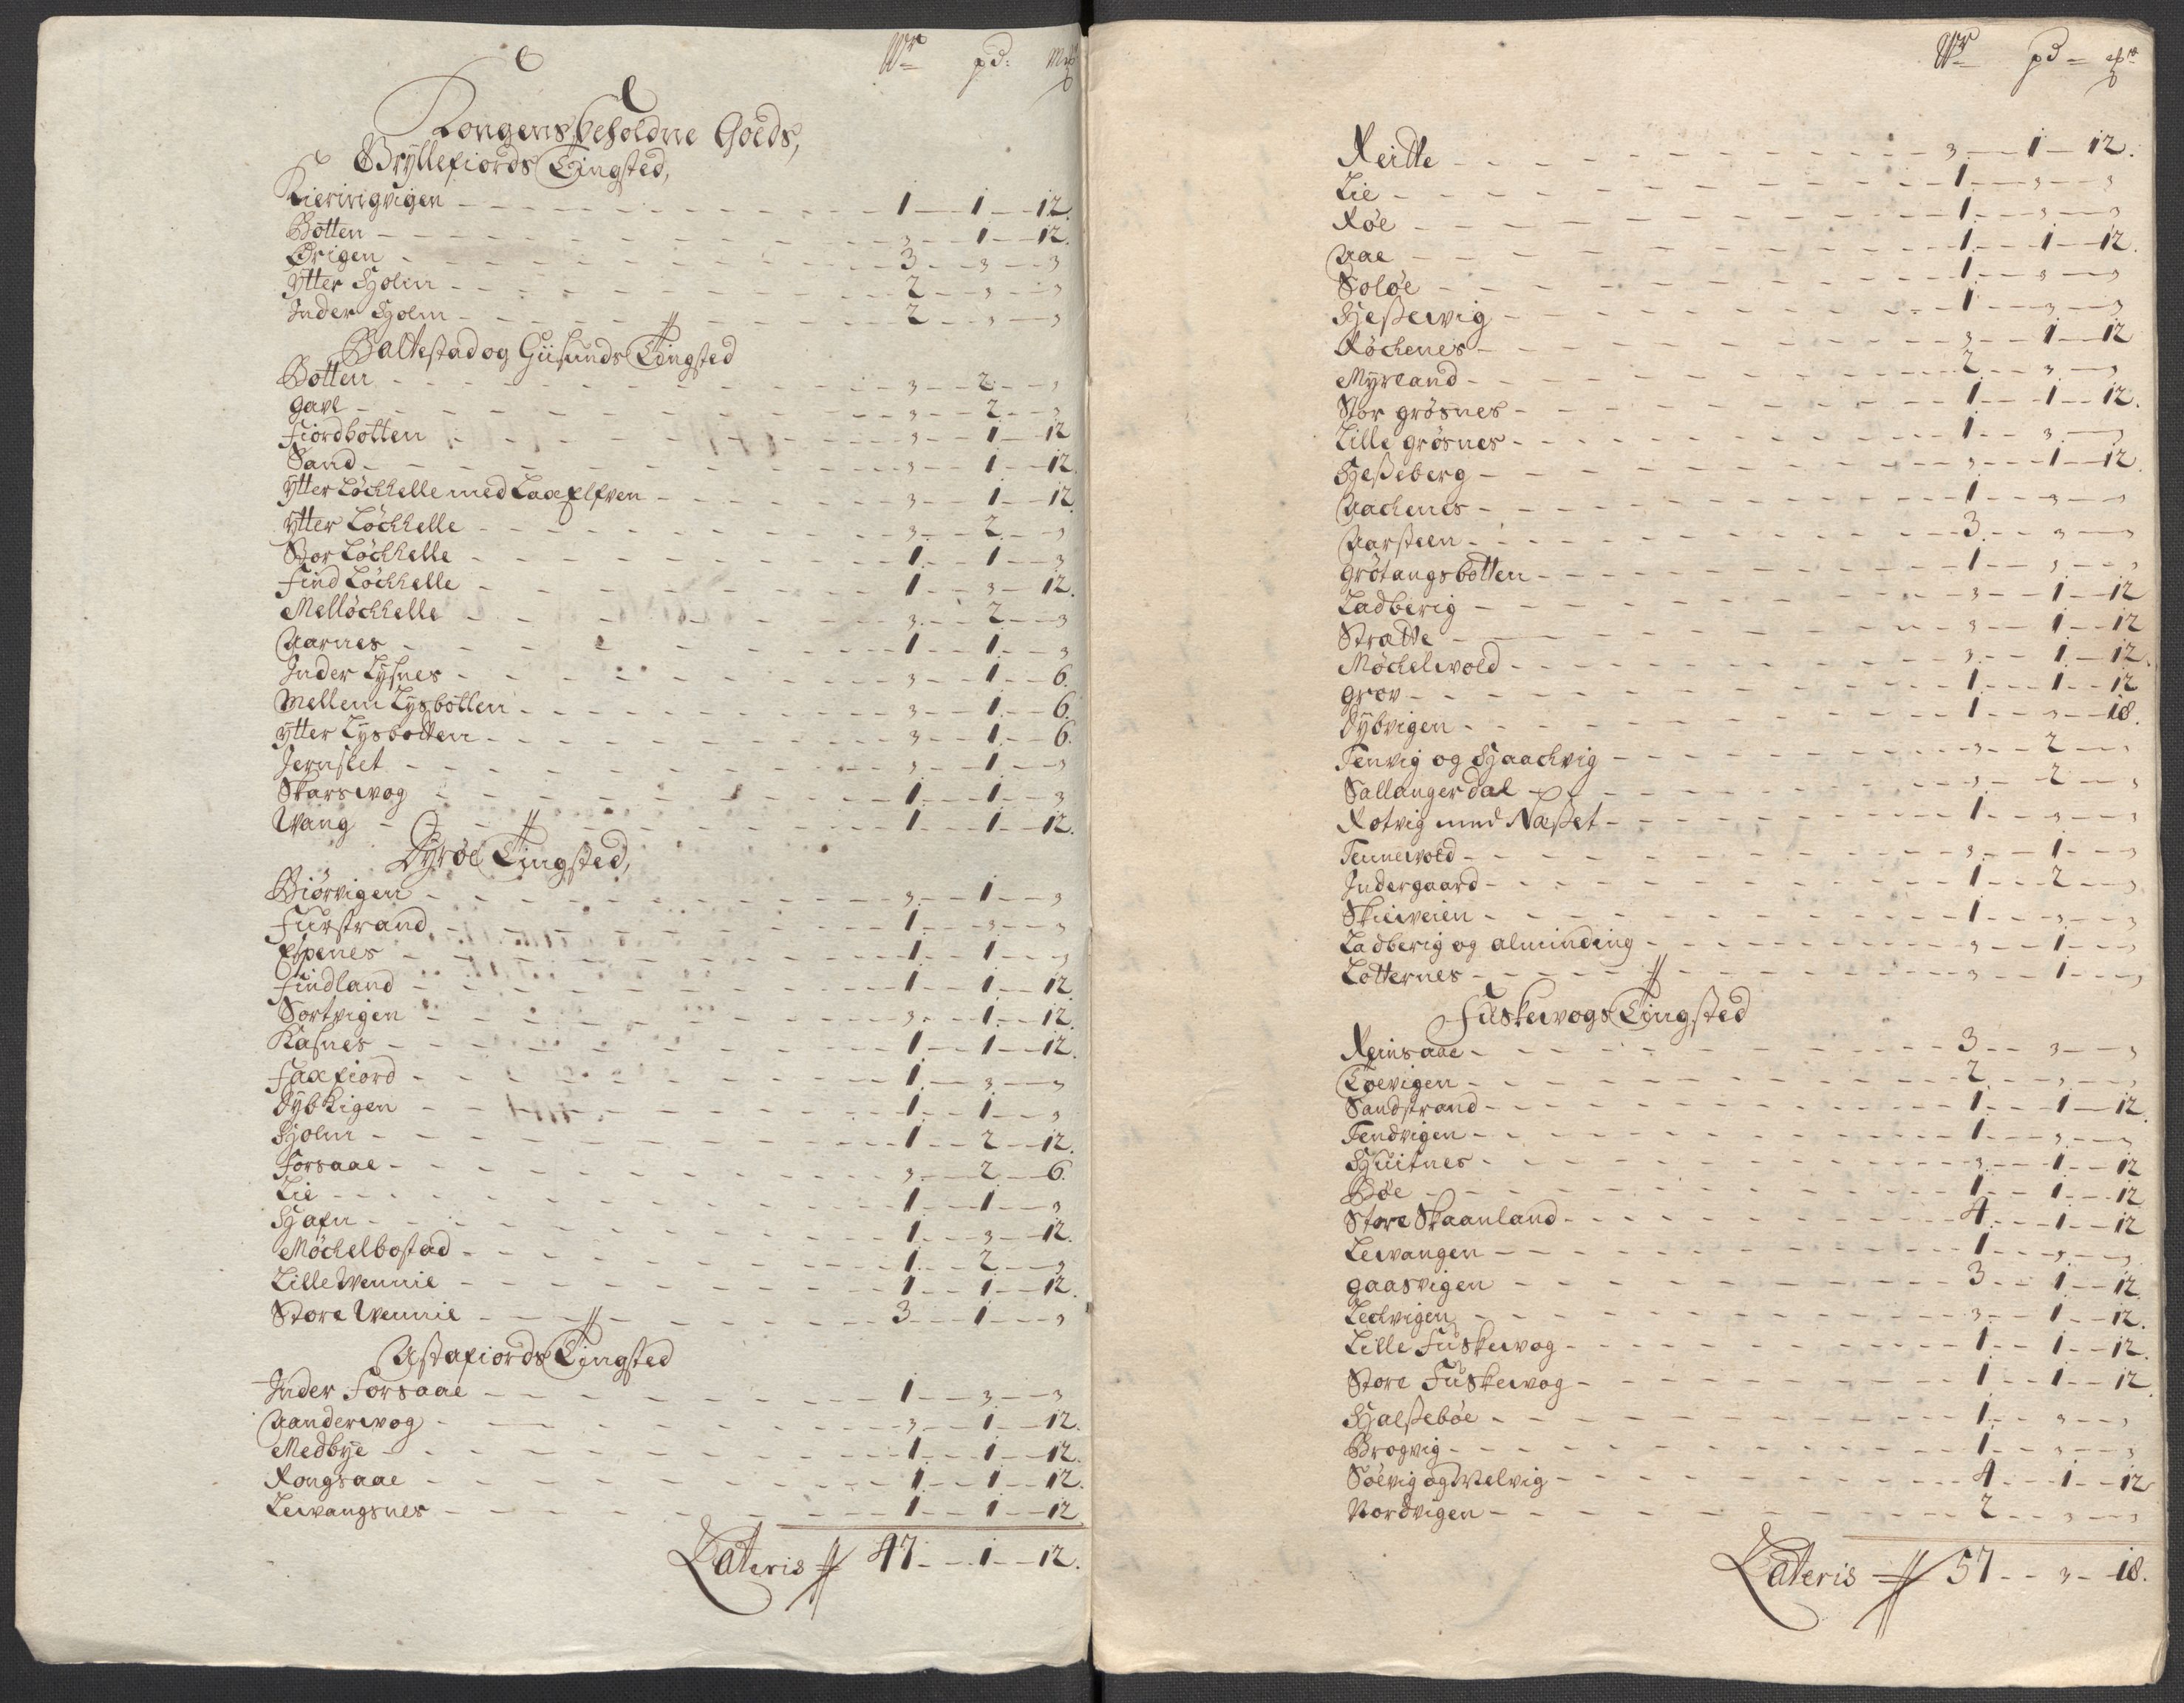 Wr pd: Mk
Kongens beholdne Goeds,
Gryllefiords Tingsted,
Kieringvigen 1 1 12.
Botten 3 1 12.
Ørigen 3 3 3
Ytter Holm 2 3 3
Inder Holm 2 3 3
Baltestad og Giisunds Tingsted
Botten 3 2 3
Gavl 3 2 3
Fiordbotten 3 1 12
Sand 3 1 12.
Ytter Løchhelle med Lax Elfven 3 1 12
Ytter Løchhelle 3 2 3
Stor Løchhelle 1 1 3
Find Løchhelle 1 3 12.
Melløchhelle 3 2 3
Aarnes 1 1 3
Inder Lysnes 3 1 6.
Mellem Lysbotten 3 1 6.
Ytter Lysbotten 3 1 6.
Jernslet 3 1 3
Skarswog 1 1 3
Wang 1 1 12.
Dyrøe Tingsted,
Biørvigen 3 1 3
Furstrand 1 3 3
Espenes 1 1 3
Findland 1 1 12
Sortvigen 3 1 12.
Kasnes 1 1 12.
Faxfiord 1 3 3
Dybvigen 1 1 3
Holm 1 2 12.
Forsaae 3 2 6.
Lie 1 1 3
Hafn 1 3 12.
Møchelbostad 1 2 3
Lille Wennie 1 1 12.
Store Wennie 3 1 3
Astafiords Tingsted
Inder Forsaae 1 3 3
Aanderwog 3 1 12.
Medbye 1 1 12.
Rongsaae 1 1 12.
Lewangsnes 1 1 12
Lateris 47 1 12.
Wr pd
Reidte 3 1 12.
Lie 1 3 3
Røe 1 3 3
Aae 1 1 12.
Soløe 1 3 3
Hessewig 1 3 3
Røchenes 3 1 12
Myrland 2 3 3
Stor grøsnes 1 1 12.
Lille grøsnes 1 3 3
Hesseberg 3 1 12.
Aachenes 1 3 3
Aarsteen 3 3 3
Grøtangsbotten 1 3 3
Ladberig 3 1 12
Strætte 3 1 12
Møchelwold 3 1 12.
Grov 1 1 12
Dybvigen 1 3 18.
Tenvig og Haachvig 3 2 3
Sallangerdal 3 2 3
Rotvig med Næsset 1 3 3
Tennewold 3 1 3
Indergaard 1 2 3
Skiieveien 1 3 3
Ladberig og alminding 3 1 3
Lotternes 3 1 3
Fuskewogs Tingsted
Reinsaae 3 3 3
Tøevigen 2 3 3
Sandstrand 1 1 12.
Tendvigen 1 3 3
Huitnes 3 1 12
Bøe 1 1 12
Store Skaanland 4 1 12
Lewangen 1 3 3
Gaasvigen 3 1 12
Ledvigen 3 1 12.
Lille Fuskewog 1 1 12.
Store Fuskewog 1 1 12.
Halssebøe 1 3 3
Brogvig 1 3 3
Søevig og Welvig 4 1 12
Nordvigen 2 3 3
Lateris 57 3 18.